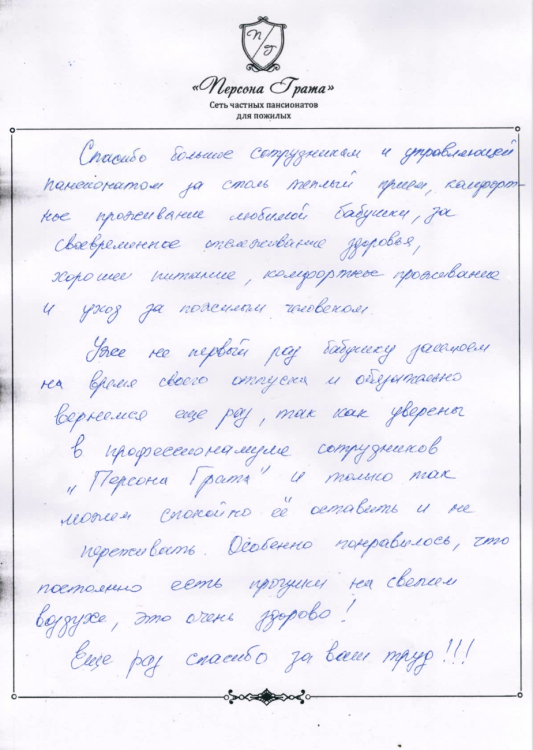 П Г
«Персона Грата»
Сеть частных пансионатов
для пожилых
Спасибо большое сотрудникам и управляющей
пансионатом за столь теплый прием, комфорт-
ное проживание любимой бабушки, за
своевременное отслеживание здоровья,
хорошее питание, комфортное проживание
и уход за пожилым человеком.
Уже не первый раз бабушку заселяем
на время своего отпуска и обязательно
вернемся еще раз, так как уверены
в профессионализме сотрудников
„Персона Грата" и только так
можем спокойно её оставить и не
переживать. Особенно понравилось, что
постоянно есть прогулки на свежем
воздухе, это очень здорово!
Еще раз спасибо за ваш труд!!!